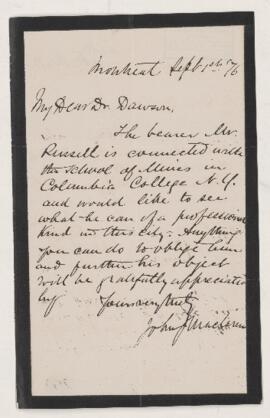 Montreal Sept 1st 76
My Dear Dr. Dawson,
The bearer Mr.
Russell is connected with
the School of Mines in
Columbia College N.Y.
and would like to see
what he can of a professional
kind in this city. Anything
you can do to oblige him
and further his object
will be gratefully appreciated
by Yours very truly
John